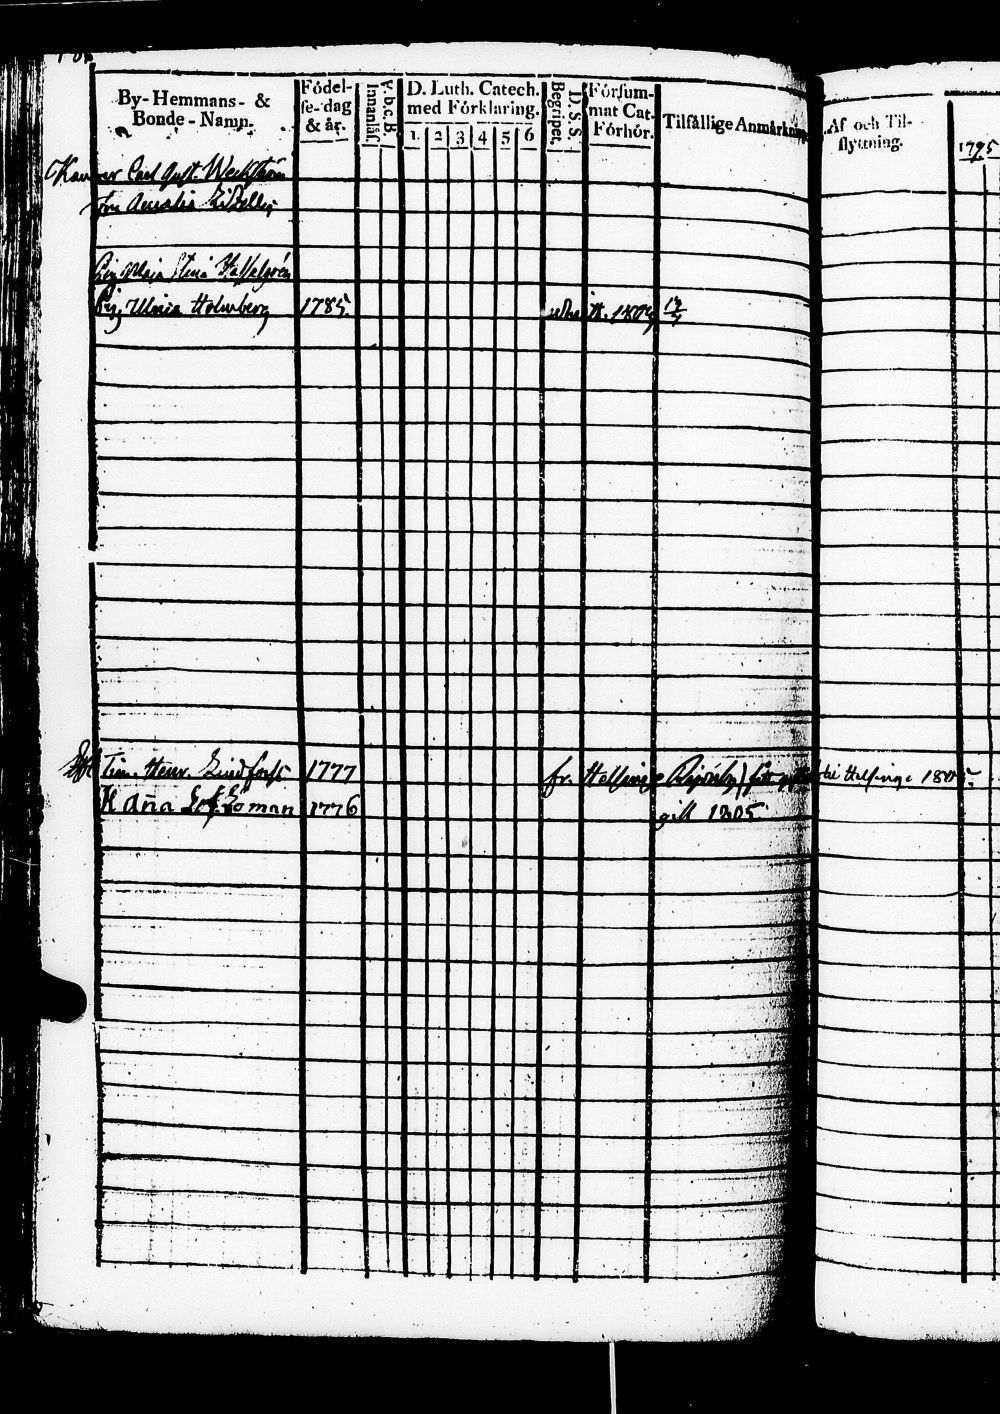 By-Hemmans- &
Bonde-Namn.
Födel-
se-dag
& år.
A.b.c.B.
Innanläs.
D. Luth. Catech.
med Förklaring.
1 2 3 4 5 6
D.S.S.
Begripet.
Försum-
mat Cat.
Förhör.
Tilfällige Anmärkning
Af och Til-
flyttning.
1795
Carl Gust. Weckström
Fru Amalia
Pig. Maja Stina Hasselgrén
Pig. Ulrica Holmberg 1785
Tim. Henr. Lindfors 1777 fr. Helsinge til Helsinge 1805
H. Anna Ekoman 1776 gift 1805